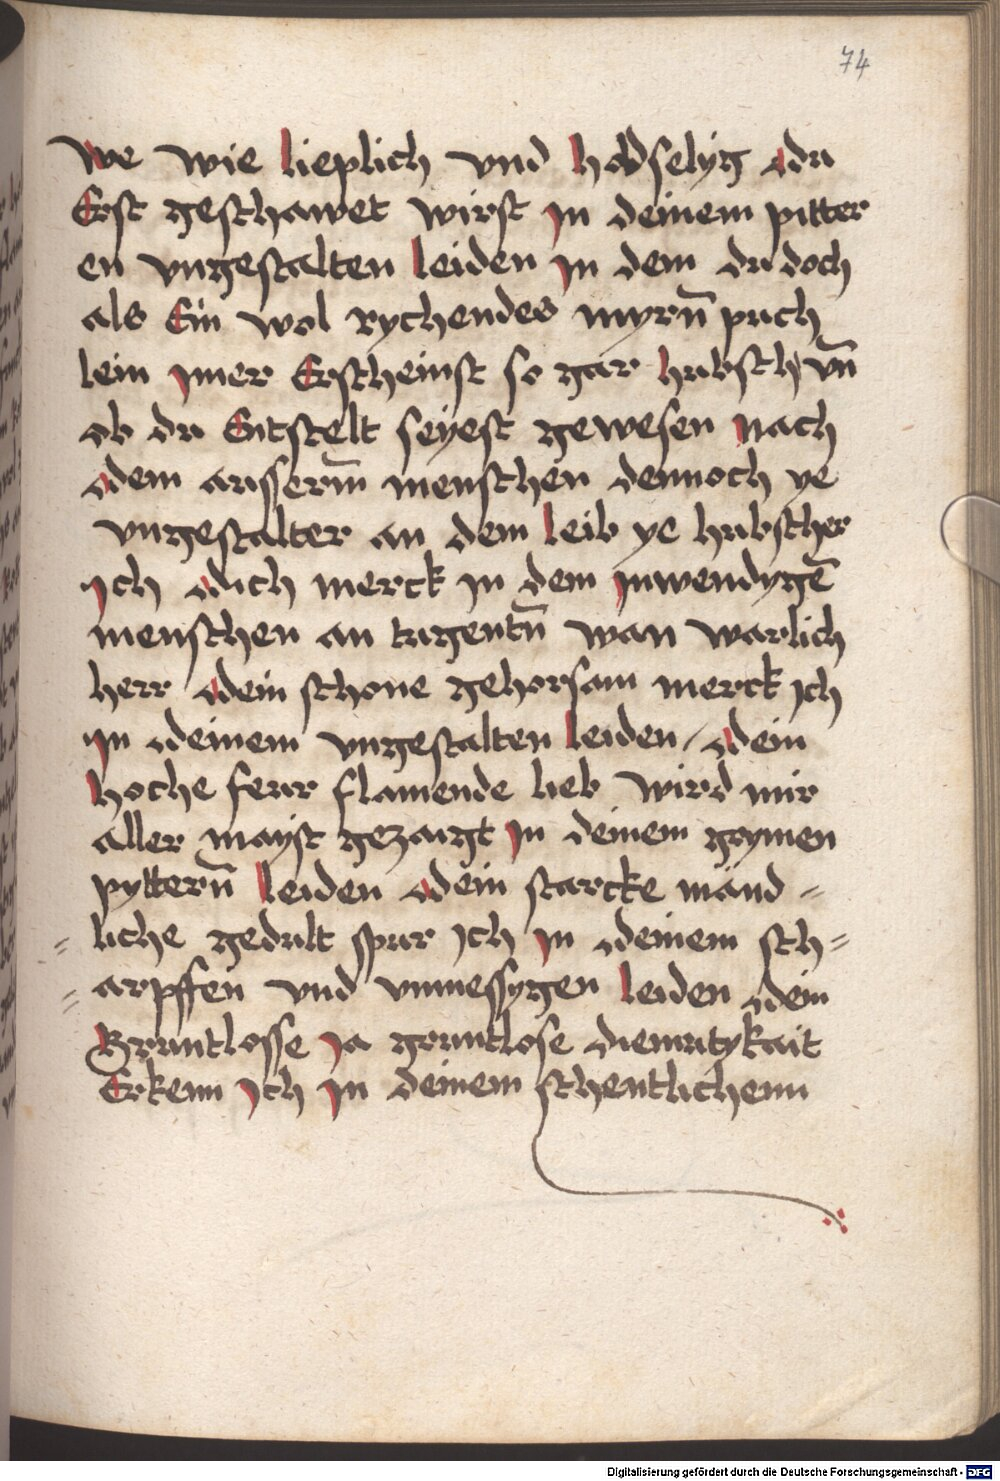 74
We wie lieplich vnd holdselyg du
Erst geschawet wirst jn deinem pitter
en vngestalten leiden jn dem du doch
als Ein wol rychendes myrn̄ puch
lein jmer Erscheinst so gar hubsch vn̄
ob du Entstelt seyest gewesen nach
dem ausserm̄ menschen dennoch ye
vngestalter an dem leib ye hubscher
jch dich merck jn dem jnwendygē
menschen an tugentn̄ wan warlich
herr dein schone gehorsam merck jch
jn deinem vngestalten leiden / dein
hoche feur flamende lieb wird mir
aller mayst gezaigt jn deinem grymen
pyttern̄ leiden dein starcke mänd =
liche gedult spur jch jn deinem sch=
arpffen vnd vnmessygen leiden dein
Gruntlosse ja gruntlose diemutykait
Erkenn jch jn deinem schentlichenn
Digitalisierung gefördert durch die Deutsche Forschungsgemeinschaft - DFG